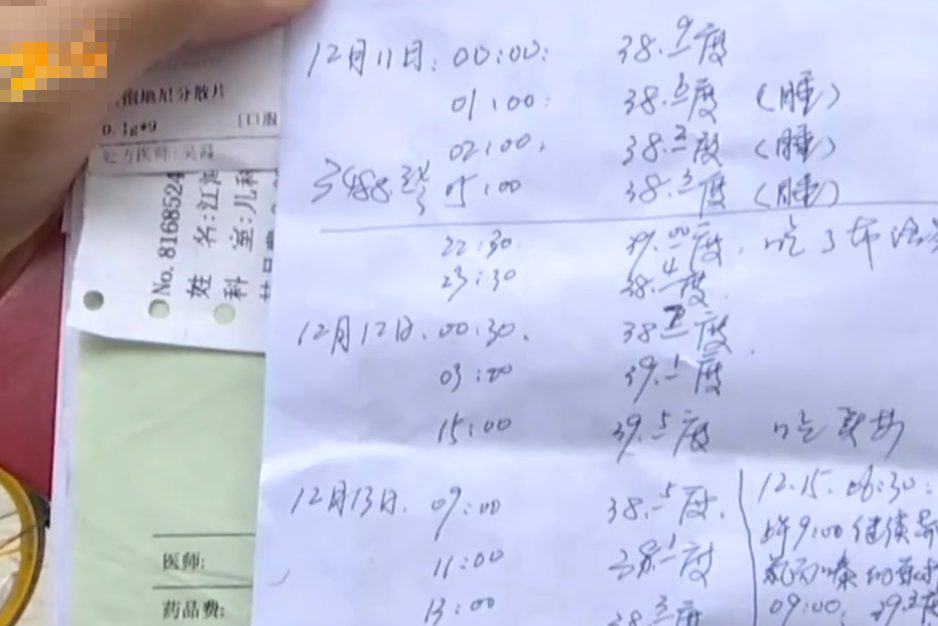 12月11日: 00:00: 38.9度
01:00: 38.6度 (肿)
02:00, 38.2度 (肿)
05:00 38.3度 (肿)
22:30 39.00度. 吃了布洛
23:30 38.4度.
12月12日. 00:30. 38.7度.
03:20 39.1度
15:00 39.5度 吃
12月13日. 09:00 38.5度.
11:00 38.1度
13:00 38.3度
12.15. 06:30:
9:00 继续
09:00. 39.3度
分散片
0.1g*9 口服
处方医师:吴霞
No. 8168524
姓 名:江
科 室:儿科
医师:
药品费: